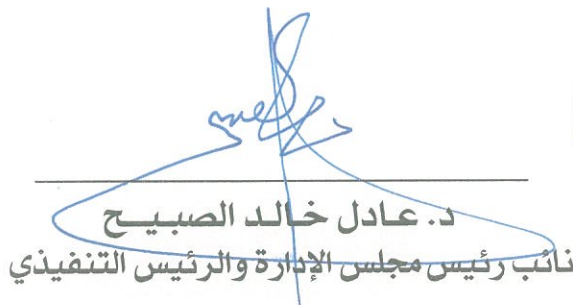 د. عادل خالد الصبيح
نائب رئيس مجلس الإدارة والرئيس التنفيذي